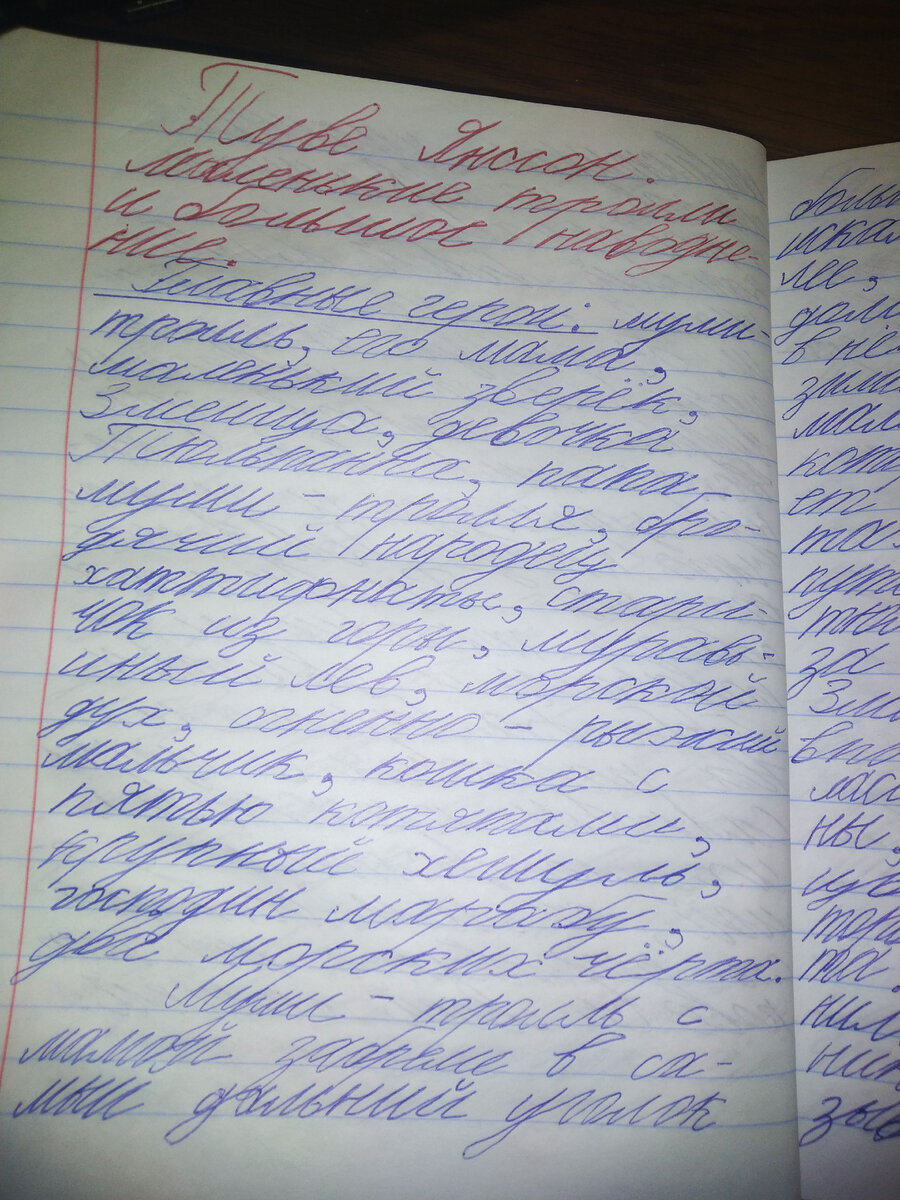 Туве Янссон.
Маленькие тролли
и большое наводне-
ние.
Главные герои: муми-
тролль, его мама,
маленький зверёк,
Змеища, девочка
Тюльпанна, папа
муми-тролля, бро-
дячий народец
хаттифнаты, стари-
чок из горы, муравь-
иный лев, морской
дух, огненно-рыжий
мальчик, кошка с
пятью котятами,
крупный хемуль,
господин марабу,
два морских чёрта.
Муми-тролль с
мамой забрели в са-
мый дальний уголок
боль
искал
лее,
в нё
ет
за
Зме
ны,
та.